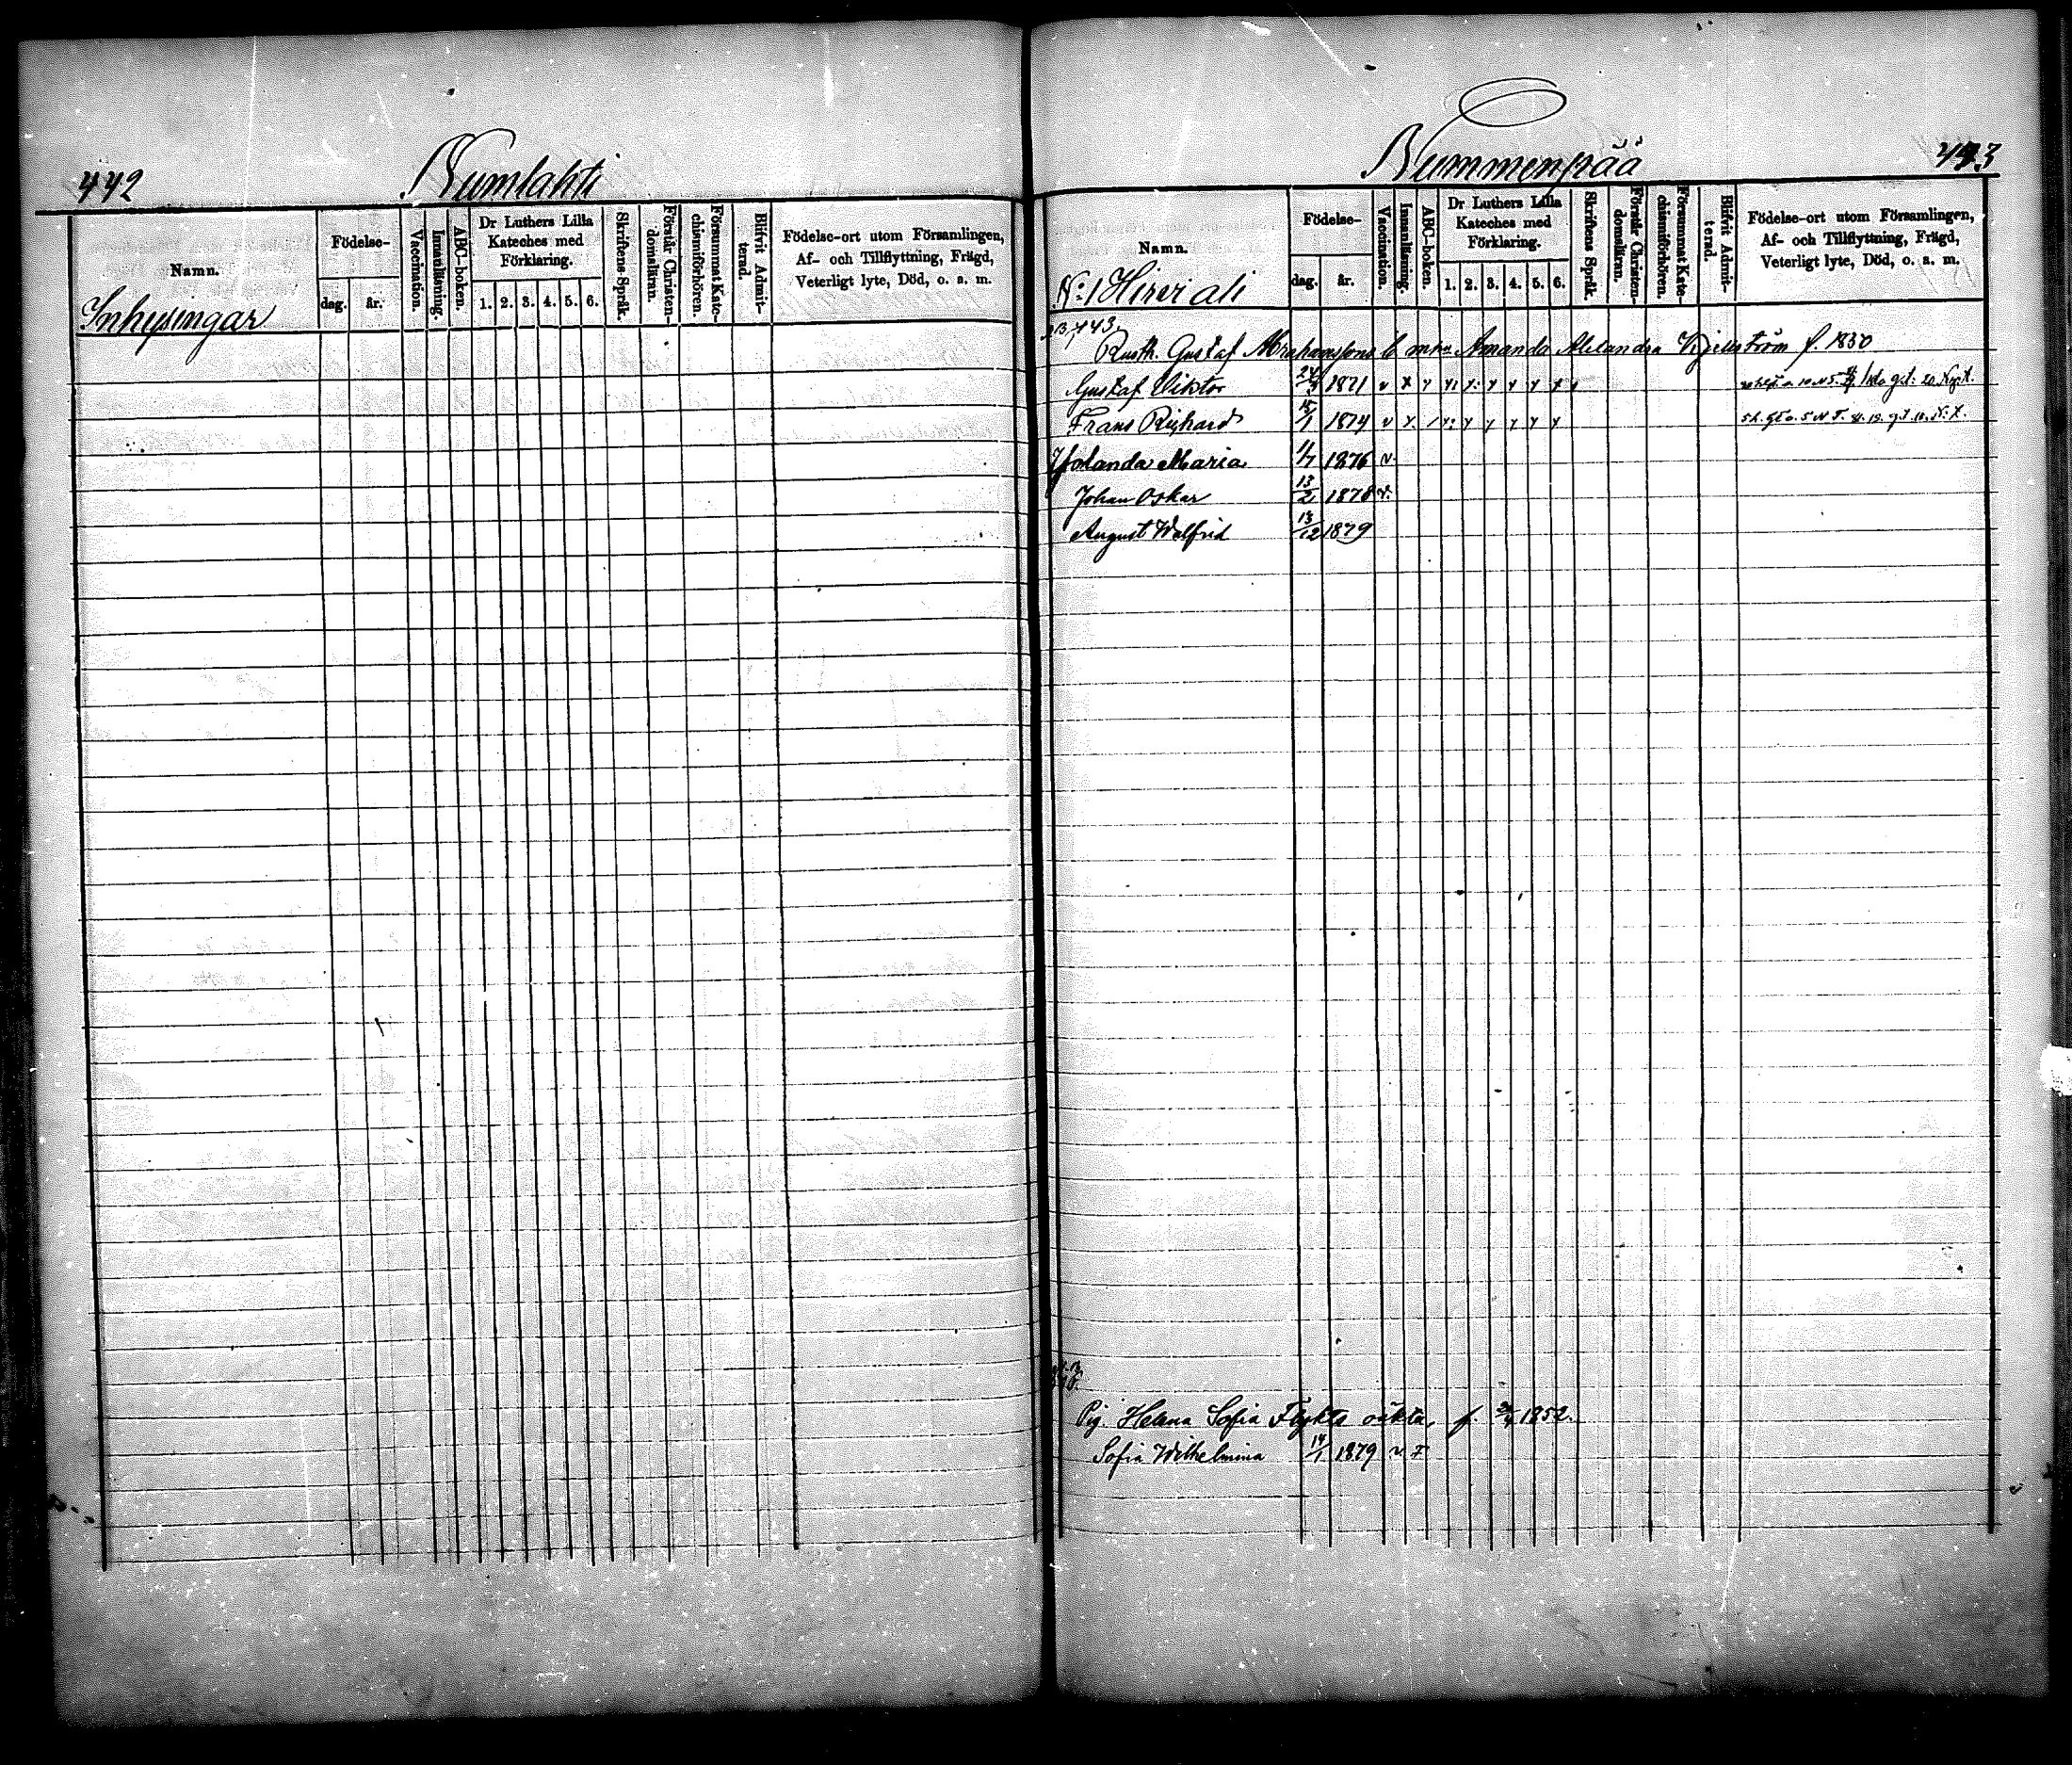 442
Numlahti
Namn.
Födelse-
dag.
år.
Vaccination.
Innanläsning.
ABC-boken.
Dr Luthers Lilla
Kateches med
Förklaring.
1. 2. 3. 4. 5. 6.
Skriftens Språk.
Förstår Christen-
domsläran.
Försummat Kate-
chismiförhören.
Blifvit Admit-
terad.
Födelse-ort utom Församlingen,
Af- och Tillflyttning, Frägd,
Veterligt lyte, Död, o. s. m.
Inhysingar
Nummenpää
443
Namn.
Födelse-
dag.
år.
Vaccination.
Innanläsning.
ABC-boken.
Dr Luthers Lilla
Kateches med
Förklaring.
1. 2. 3. 4. 5. 6.
Skriftens Språk.
Förstår Christen-
domsläran.
Försummat Kate-
chismiförhören.
Blifvit Admit-
terad.
Födelse-ort utom Församlingen,
Af- och Tillflyttning, Frägd,
Veterligt lyte, Död, o. s. m.
No: 1 Hirvi ali
Rusth. Gustaf Abrahamssons b m hu Amanda Alexandra f. 1850
Gustaf Viktor 24/4 1871 v x
Frans Rikhard 15/1 1874 v x
Jolanda Maria 1/7 1876 v
Johan Oskar 13/2 1878 v.
August Walfrid 13/12 1879
Pig. Helena Sofia Flykts oäkta, f. 1852.
Sofia Wilhelmina 14/1 1879 v x